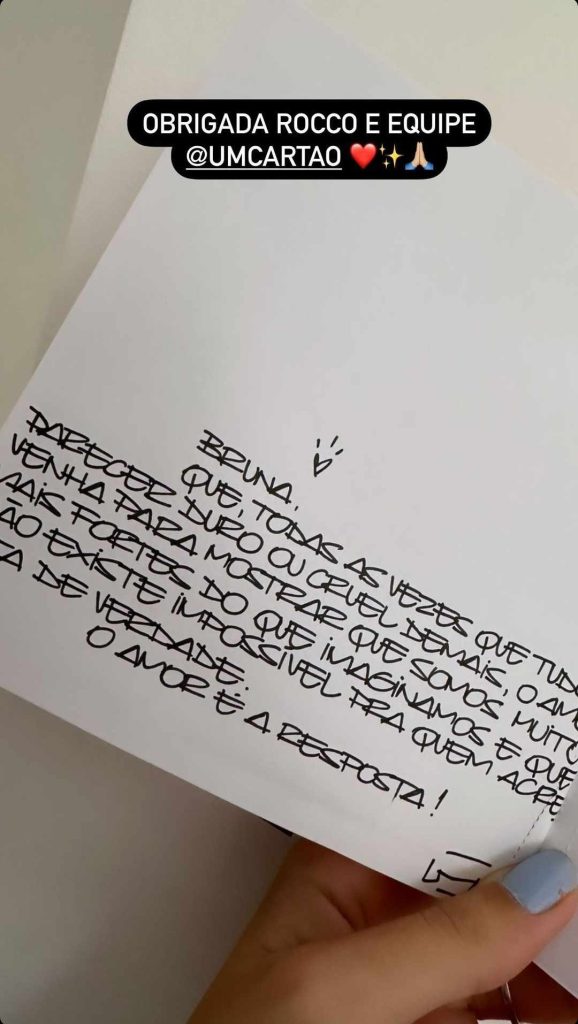 OBRIGADA ROCCO E EQUIPE
@UMCARTAO ❤️✨🙏🏻
BRUNA,
QUE, TODAS AS VEZES QUE TUDO
PARECER DURO OU CRUEL DEMAIS, O AMO
VENHA PARA MOSTRAR QUE SOMOS MUITO
MAIS FORTES DO QUE IMAGINAMOS E QUE
ÃO EXISTE IMPOSSÍVEL PRA QUEM ACRE
TA DE VERDADE.
O AMOR É A RESPOSTA!